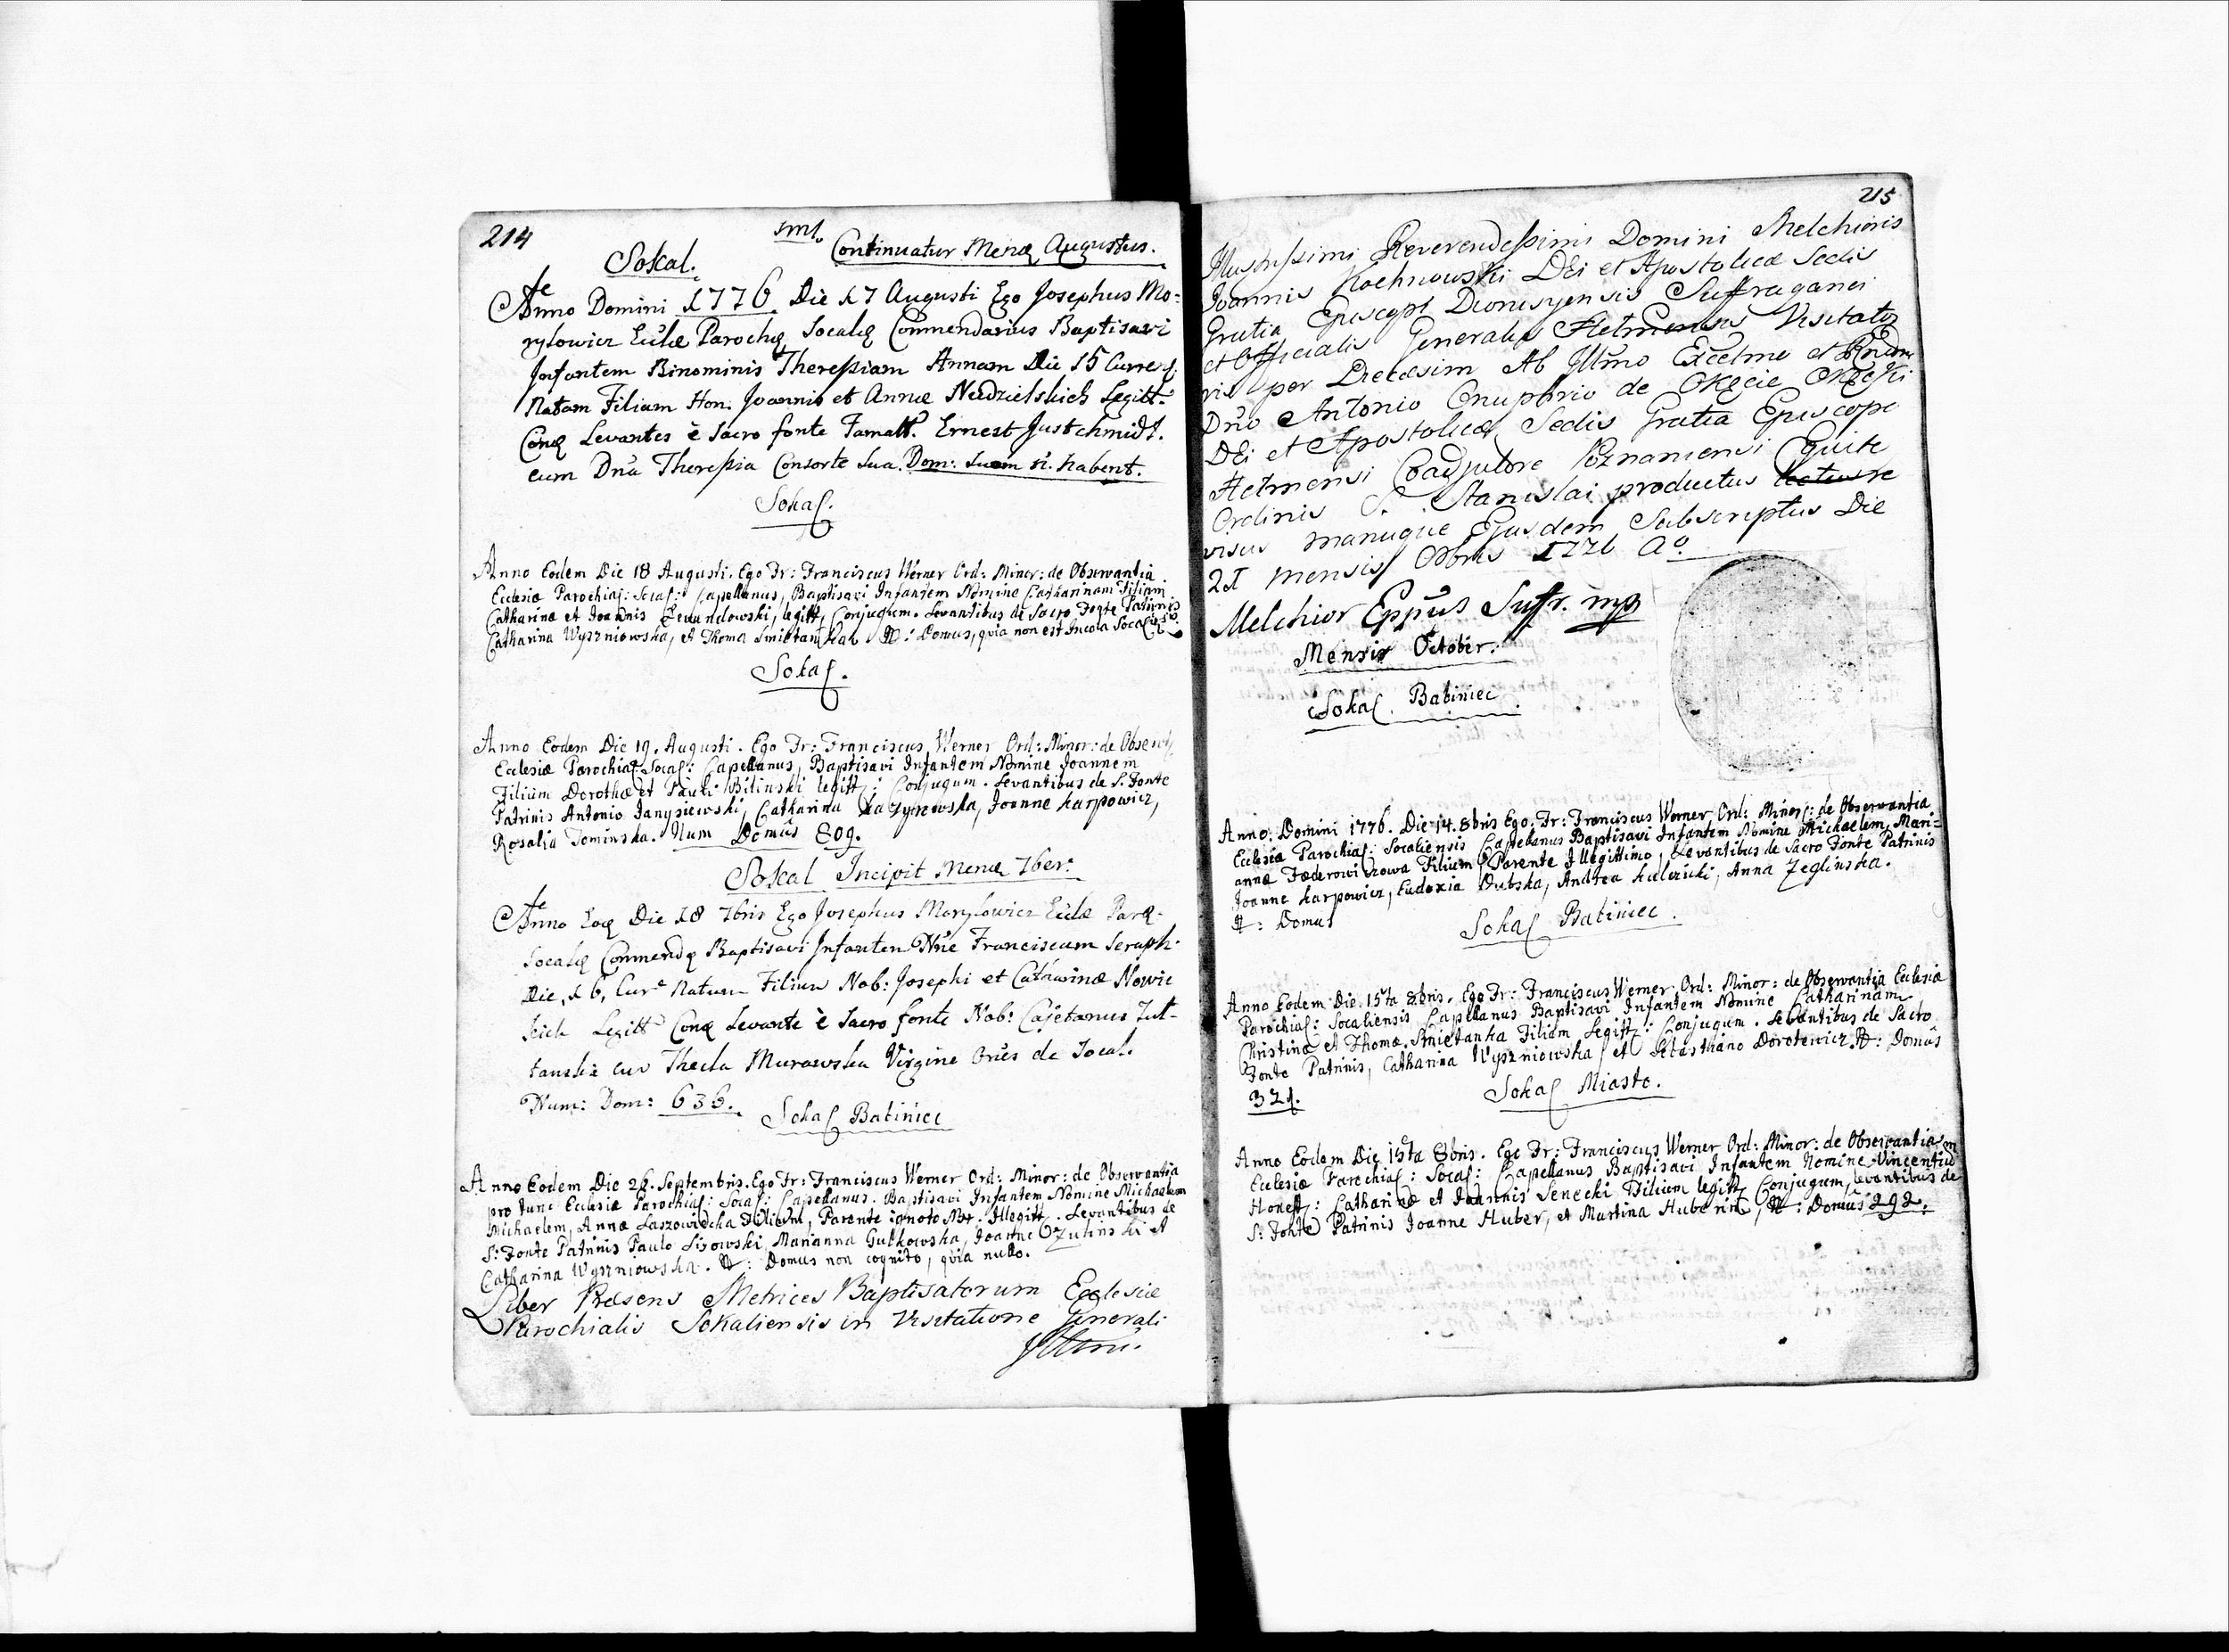 214
Continuatur Mens Augustus.
Sokal.
Anno Domini 1776. Die 17 Augusti Ego Josephus Mo-
rylowicz Eccl̄æ Paroch Socal Commendarius Baptisavi
Infantem Binominis Theressiam Annam Die 15 Curre
Natam Filiam Hon. Joannis et Annæ Niedzielskich Legitt.
Con Levantes è Sacro fonte Famatt. Ernest Justchmidt.
cum Dnā Theressia Consorte sua. Dom: suam n̄. habent.
Sokal.
Anno Eodem Die 18 Augusti. Ego Fr: Franciscus Werner Ord: Minor: de Observantia
Ecclesiæ Parochial: Socal: Capellanus, Baptisavi Infantem Nomine Catharinam Filiam
Catharinæ et Joannis Lewandowski, legitt, Conjugum. Levantibus de Sacro Fonte Patrinis
Catharina Wyszniowska, et Thoma Smietanka. N: Domus, quia non est Incola
Sokal.
Anno Eodem Die 19. Augusti. Ego Fr: Franciscus Werner Ord: Minor: de Observ
Ecclesiæ Parochial: Socal: Capellanus, Baptisavi Infantem Nomine Joannem
Filium Dorotheæ et Pauli Bilinski legitt: Conjugum. Levantibus de S. Fonte
Patrinis Antonio Janyszewski, Catharina Joanne Karpowicz,
Rosalia Tominska. Num Domûs 809.
Sokal Incipit Mens 7ber:
Anno Eo Die 18 7bris Ego Josephus Morylowicz Eccl̄æ Par
Socal Commend Baptisavi Infantem Nn̄e Franciscum Seraph.
Die, 16, Curr Natum Filium Nob: Josephi et Catarinæ Nowic
kich Legitt Con Levante è Sacro fonte Nob: Cajetanus
cum Thecla Murawska Virgine de Socal.
Num: Dom: 636.
Sokal Babiniec
Anno Eodem Die 28. Septembris. Ego Fr: Franciscus Werner Ord: Minor: de Observantia
pro tunc Ecclesiæ Parochial: Socal: Capellanus. Baptisavi Infantem Nomine Michaelem
Michaelem, Annæ Laszowiecka Filium, Parente ignoto Illegitt. Levantibus de
S: Fonte Patrinis Paulo Lisowski, Marianna Gulkowska, Joanne et
Catharina Wyszniowska. N: Domus non cognito, quia nullo.
Liber Præsens Metrices Baptisatorum Ecclesiæ
Parochialis Sokaliensis in Visitatione Generali
Illmi
215
Illustrissimi Reverendissimi Domini Melchioris
Joannis Kochnowski DEi et Apostolicæ Sedis
Gratia Episcopi Dionisyensis Suffraganei
et Officialis Generalis Helmensis Visitato
ris per Diœcesim Ab Illmo Excelmo et Rndmo
Dn̄o Antonio Onuphrio de Okęcie Okęcki
DEi et Apostolicæ Sedis Gratia Episcopo
Helmensi Coadjutore Poznaniensi Equite
Ordinis S. Stanislai productus
visus manuque Ejusdem Subscriptus Die
21 mensis Octobris 1776 Aº.
Melchior Eppūs Sufr. mp
Mensis October.
Sokal Babiniec
Anno: Domini 1776. Die 14. 8bris Ego. Fr: Franciscus Werner Ord: Minor: de Observantia
Ecclesiæ Parochial: Socaliensis Capellanus Baptisavi Infantem Nomine Michaelem, Mari=
annæ Fœderowiczowa Filium Parente Illegittimo, Levantibus de Sacro Fonte Patrinis
Joanne Karpowicz, Eudoxia Dubska, Andrea Anna Zeglinska.
N: Domus
Sokal Babiniec.
Anno Eodem Die 15ta 8bris. Ego Fr: Franciscus Werner Ord: Minor: de Observantia Ecclesiæ
Parochial: Socaliensis Capellanus Baptisavi Infantem Nomine Catharinam
Christinæ et Thomæ Smietanka Filiam Legitt: Conjugum. Levantibus de Sacro
Fonte Patrinis, Catharina Wyszniowska et Sebasthiano Dorotewicz. N: Domûs
321.
Sokal Miasto.
Anno Eodem Die 15ta 8bris. Ego Fr: Franciscus Werner Ord: Minor: de Observantia
Ecclesiæ Parochial: Socal: Capellanus Baptisavi Infantem Nomine Vincentium
Honest: Catharinæ et Joannis Senecki Filium legitt Conjugum, Levantibus de
S: Fonte Patrinis Joanne Huber, et Martina Huberin, N: Domûs 292.